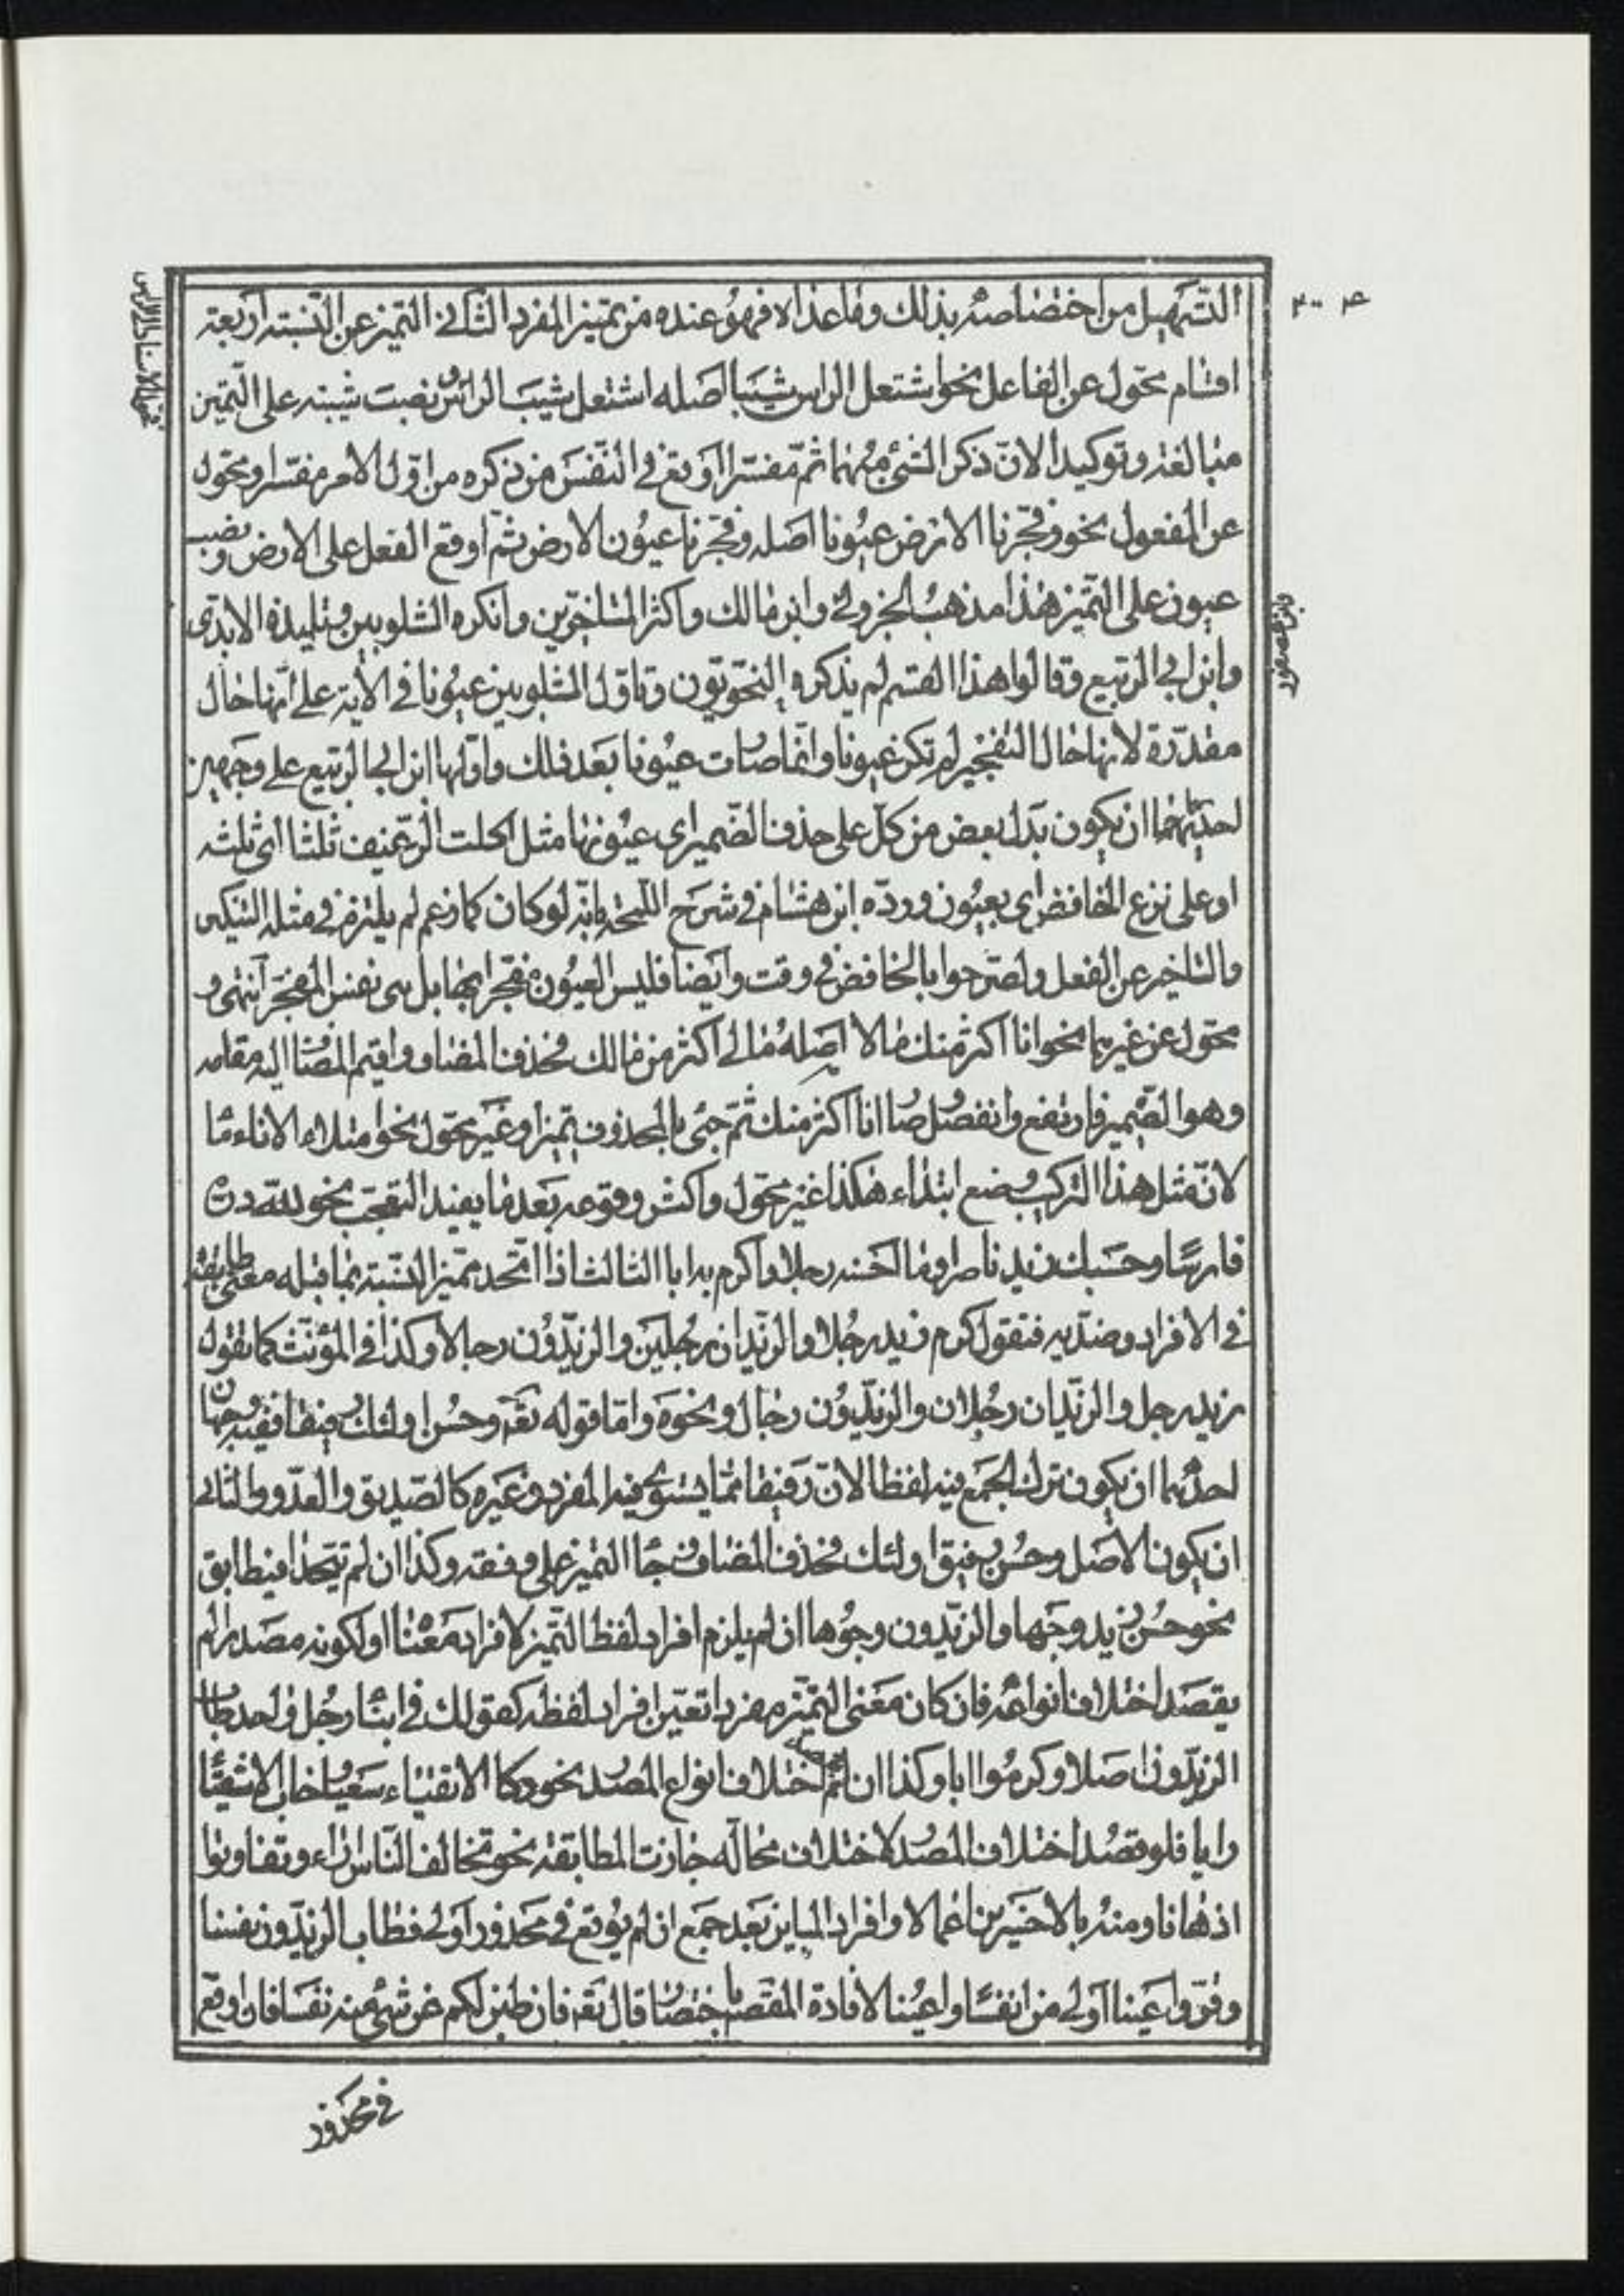 التسهيل من اختصاصه بذلك وما عداه فهو عنده من تمييز المفرد الثاني التميز عن النسبة اربعة
اقسام محول عن الفاعل نحو اشتعل الراس شيبا اصله اشتعل شيب الراس ونصبت شيبة على التميز
مبالغة وتوكيدا لان ذكر الشئ مبهما ثم مفسرا اوقع في النفس من ذكره من اول الامر مفسرا ومحول
عن المفعول نحو وفجرنا الارض عيونا اصله وفجرنا عيون الارض ثم اوقع الفعل على الارض ونصب
عيون على التميز هذا مذهب الجزولي وابن مالك واكثر المتاخرين وانكره الشلوبين وتلميذه الابدي
وابن ابي الربيع وقالوا هذا القسم لم يذكره النحويون وتاول الشلوبين عيونا في الاية على انها حال
مقدرة لانها حال التفجير لم تكن عيونا وانما صارت عيونا بعد ذلك واولها ابن ابي الربيع على وجهين
احديهما ان يكون بدل بعض من كل على حذف الضمير اى عيونها مثل اكلت الرغيف ثلثا اى ثلثه
او على نزع الخافض اى بعيون ورده ابن هشام في شرح اللمحة بانه لو كان كما زعم لم يلتزم في مثله التنكير
والتاخير عن الفعل ولصرحوا بالخافض في وقت وايضا فليس العيون مفجرا بها بل هى نفس المفجر انتهى و
محول عن غيرهما نحو انا اكثر منك مالا اصله مالي اكثر من مالك فحذف المضاف واقيم المضاف اليه مقامه
وهو الضمير فارتفع وانفصل وصار انا اكثر منك ثم جئ بالمحذوف تميزا وغير محول نحو امتلاء الاناء ماء
لان مثل هذا التركيب وضع ابتداء هكذا غير محول واكثر وقوعه بعد ما يفيد التعجب نحو لله دره
فارسا وحسبك بزيد ناصرا وما احسنه رجلا واكرم به ابا الثالث اذا اتحد مميز النسبة بما قبله معنى طابقه
في الافراد وضديه فتقول كرم زيد رجلا والزيدان رجلين والزيدون رجالا وكذا في المؤنث كما تقول
زيد رجل والزيدان رجلان والزيدون رجال ونحوه واما قوله تعه وحسن اولئك رفيقا ففيه وجهان
احدهما ان يكون ترك الجمع فيه لفظا لان رفيقا مما يستوى فيه المفرد وغيره كالصديق والعدو والثاني
ان يكون الاصل وحسن رفيق اولئك فحذف المضاف وجاء التميز على وفقه وكذا ان لم يتحدا فيطابق
نحو حسن زيد وجها والزيدون وجوها ان لم يلزم افراد لفظ التميز لافراد معناه او لكونه مصدرا لم
يقصد اختلاف انواعه فان كان معنى التميز مفردا تعين افراد لفظه كقولك في ابناء رجل واحد طاب
الزيدون اصلا وكرموا ابا وكذا ان لم يقصد اختلاف انواع المصدر نحو زكا الاتقياء سعيا وخاب الاشقياء
رايا فلو قصد اختلاف المصدر لاختلاف محاله جازت المطابقة نحو تخالف الناس آراء وتفاوتوا
اذهانا ومنه بالاخسرين اعمالا وافراد المباين بعد جمع ان لم يوقع في محذور اولى فطاب الزيدون نفسا
وقروا عينا اولى من انفسا واعينا لافادة المقصود باختصار قال تعه فان طبن لكم عن شئ منه نفسا فان اوقع
في محذور